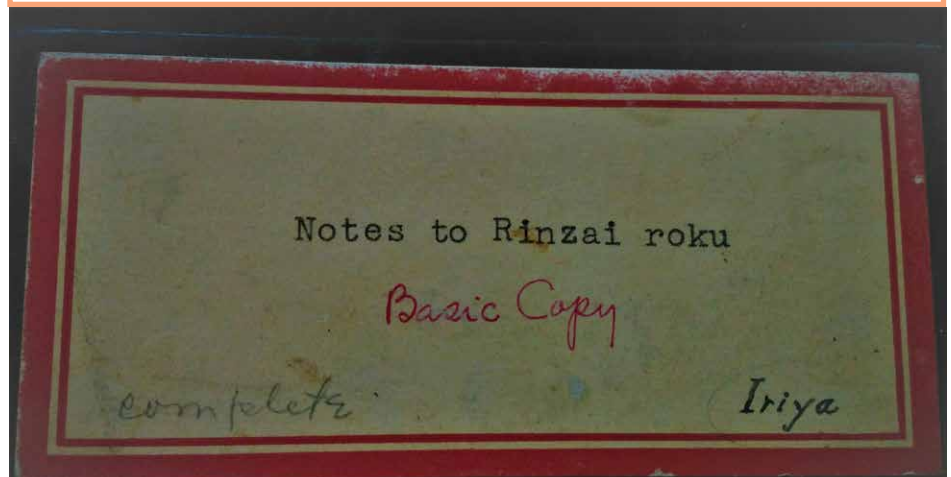 Notes to Rinzai roku
Basic Copy
complete
Iriya